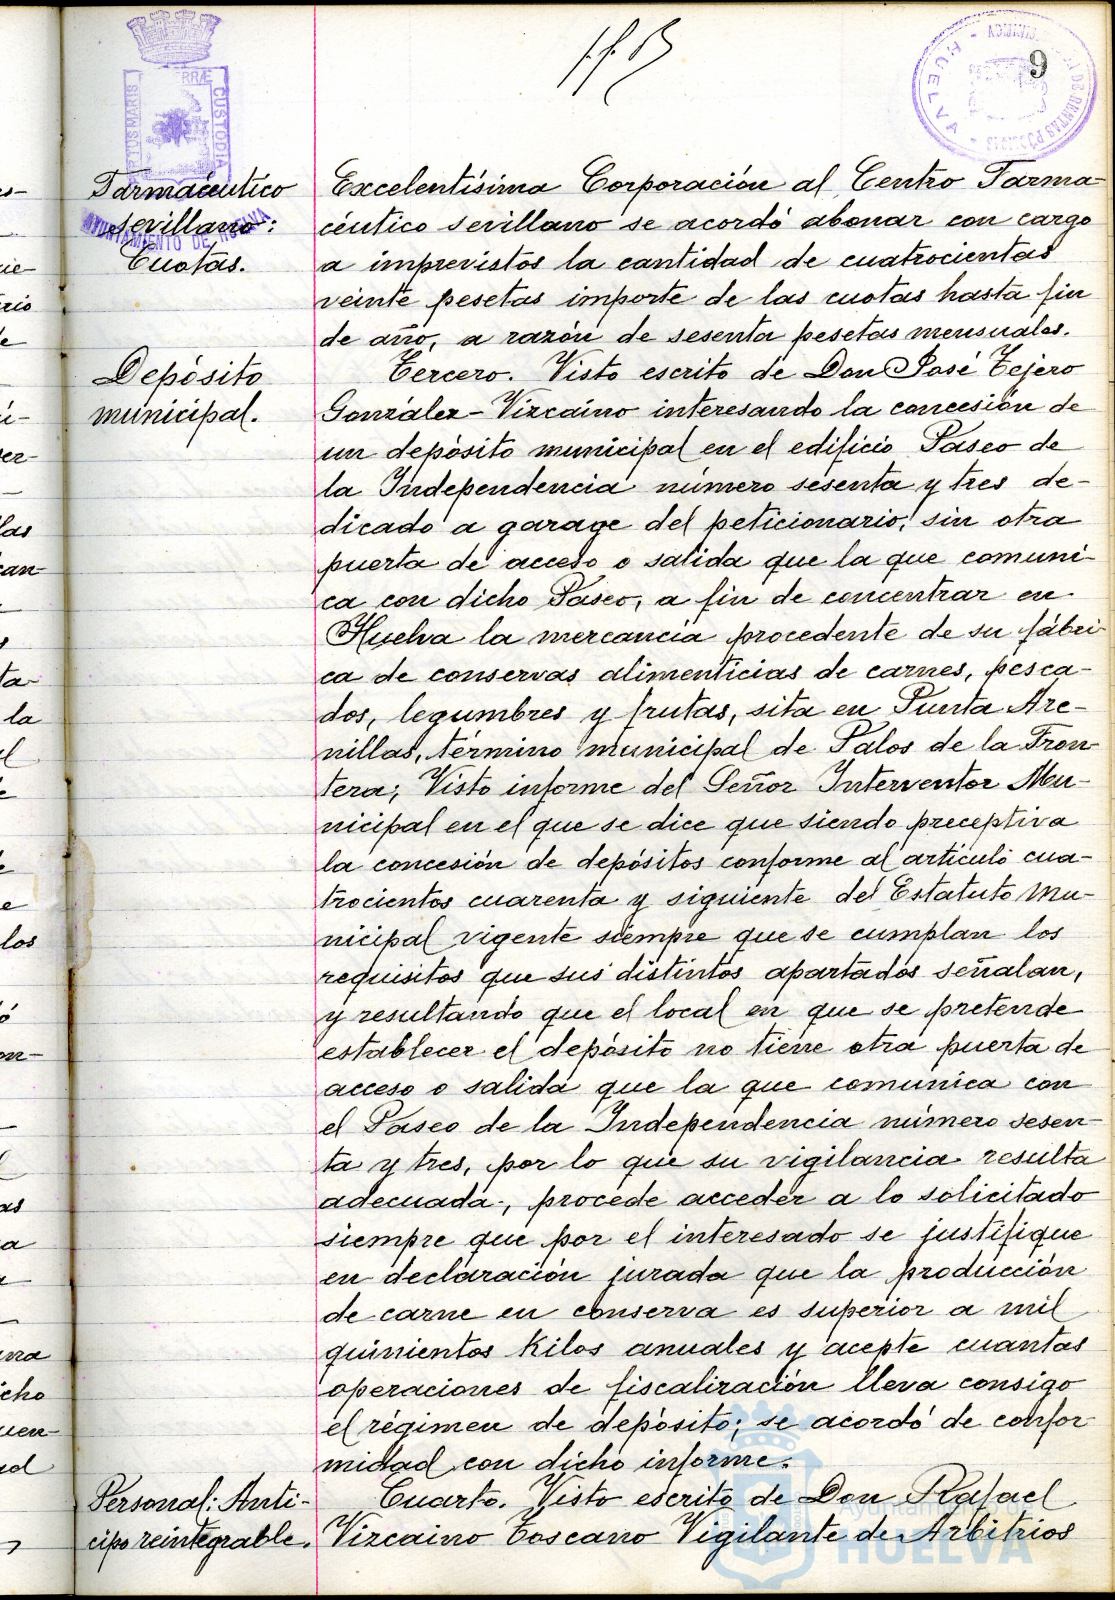 9
PORTUS MARIS
TERRÆ
CUSTODIA
AYUNTAMIENTO DE HUELVA
HUELVA
Farmacéutico
sevillano:
Cuotas.
Excelentísima Corporación al Centro Farma-
céutico sevillano se acordó abonar con cargo
a imprevistos la cantidad de cuatrocientas
veinte pesetas importe de las cuotas hasta fin
de año, a razón de sesenta pesetas mensuales.
Depósito
municipal.
Tercero. Visto escrito de Don José Tejero
González-Vizcaino interesando la concesión de
un depósito municipal en el edificio Paseo de
la Independencia número sesenta y tres de-
dicado a garage del peticionario, sin otra
puerta de acceso o salida que la que comuni-
ca con dicho Paseo, a fin de concentrar en
Huelva la mercancia procedente de su fábri-
ca de conservas alimenticias de carnes, pesca-
dos, legumbres y frutas, sita en Punta Are-
nillas, término municipal de Palos de la Fron-
tera; Visto informe del Señor Interventor Mu-
nicipal en el que se dice que siendo preceptiva
la concesión de depósitos conforme al articulo cua-
trocientos cuarenta y siguiente del Estatuto Mu-
nicipal vigente siempre que se cumplan los
requisitos que sus distintos apartados señalan,
y resultando que el local en que se pretende
establecer el depósito no tiene otra puerta de
acceso o salida que la que comunica con
el Paseo de la Independencia número sesen-
ta y tres, por lo que su vigilancia resulta
adecuada, procede acceder a lo solicitado
siempre que por el interesado se justifique
en declaración jurada que la producción
de carne en conserva es superior a mil
quinientos kilos anuales y acepte cuantas
operaciones de fiscalización lleva consigo
el régimen de depósito; se acordó de confor-
midad con dicho informe.
Personal: Anti-
cipo reintegrable.
Cuarto. Visto escrito de Don Rafael
Vizcaino Toscano Vigilante de Arbitrios
Ayuntamiento de
HUELVA